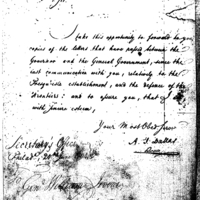 Sir,
I take this opportunity to forward to you
copies of the letters that have passed between the
Governor and the General Government, since the
last communication with you, relatively to the
Presqu'isle establishment, and the defence of the
Frontiers: and to assure you, that I am
with sincere esteem,
Your Most Obed. Serv.
A. J. Dallas
Secretary's Office
Gen. William Irvine